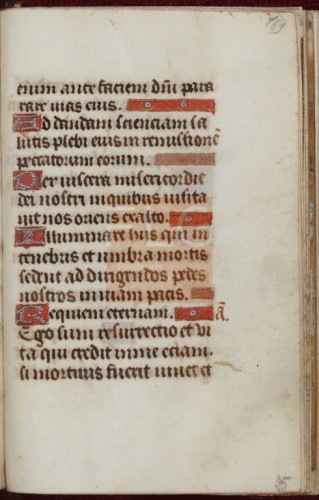 enim ante faciem dñi para
rare vias eius.
Ad dandam scienciam sa
lutis plebi eius in remissionē
peccatorum eorum.
Per viscera misericordie
dei nostri in quibus visita
uit nos oriens ex alto.
Illuminare his qui in
tenebris et umbra mortis
sedent ad dirigendos pedes
nostros in viam pacis.
Requiem eternam. ā.
Ego sum resurrectio et vi
ta qui credit in me eciam.
si mortuus fuerit vivet et